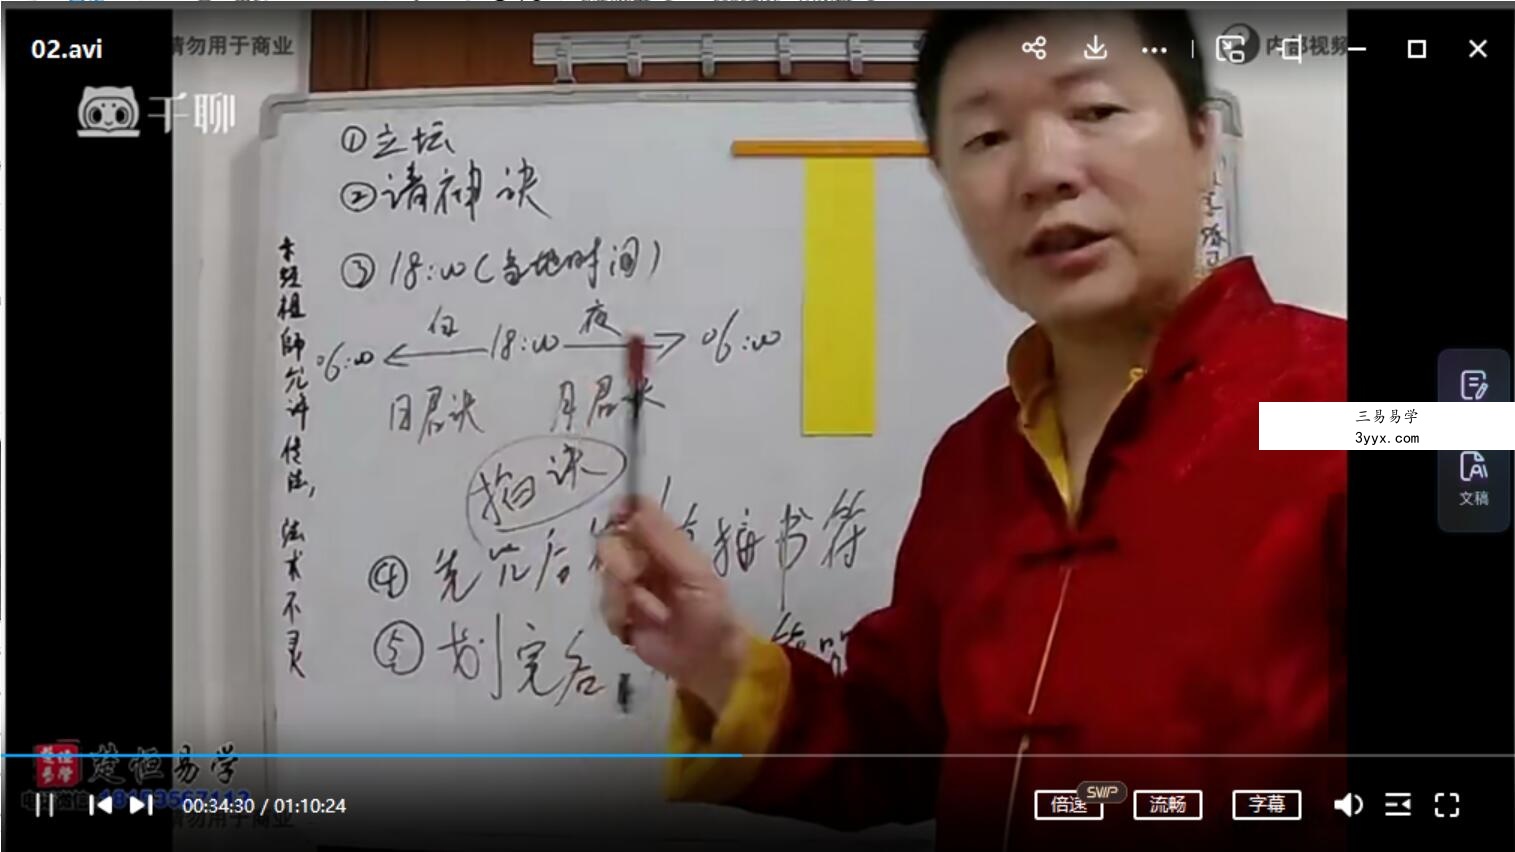 02.avi
请勿用于商业
内部视频
千聊
①立坛
②请神诀
③18:00(当地时间)
06:00 白 18:00 夜 06:00
日君诀 月君诀
掐诀
④先咒后 直接书符
⑤划完后
未经祖师允许传法，法术不灵
三易易学
3yyx.com
文稿
楚恒易学
楚恒易学
00:34:30 / 01:10:24
倍速
SVIP
流畅
字幕
请勿用于商业